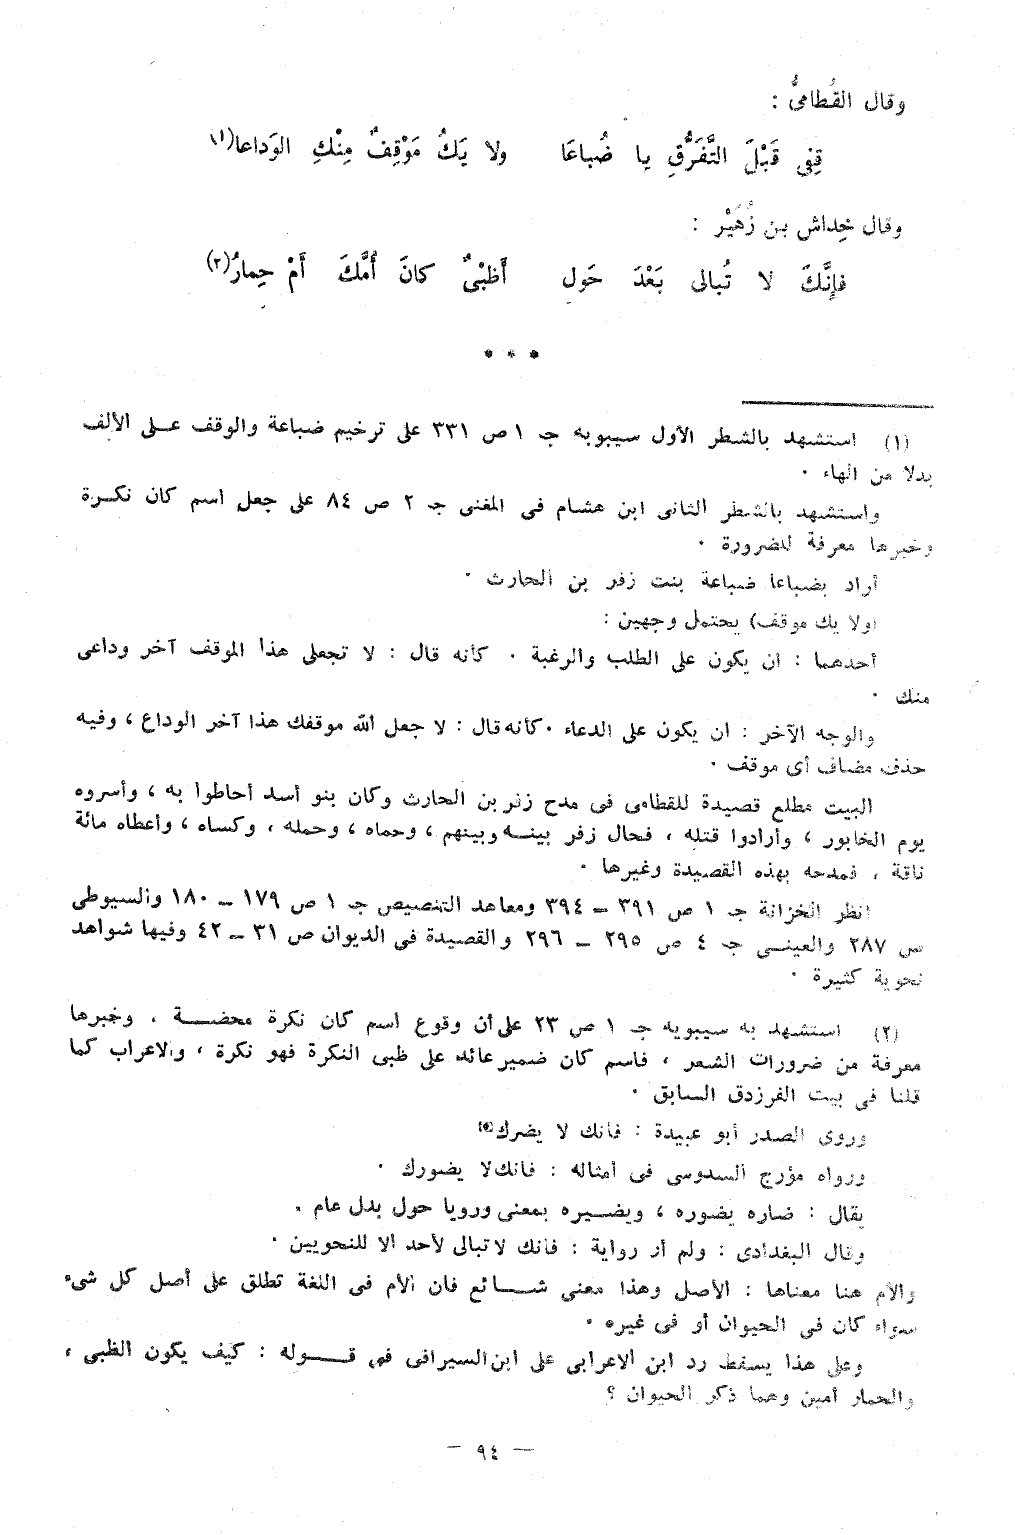 وقال القُطامىُّ :
قِفِى قَبْلَ التَّفَرُّقِ يا ضُباعَا ولا يَكُ مَوْقِفٌ مِنْكِ الوَداعا(١)
وقال خِداش بن زُهَيْر :
فإنَّكَ لا تُبالى بَعْدَ حَول أَظبْىٌ كانَ أُمَّكَ أَمْ حِمارُ(٢)
* * *
(١) استشهد بالشطر الأول سيبويه جـ ١ ص ٣٣١ على ترخيم ضباعة والوقف على الألف
بدلا من الهاء ٠
واستشهد بالشطر الثانى ابن هشام فى المغنى جـ ٢ ص ٨٤ على جعل اسم كان نكرة
وخبرها معرفة للضرورة ٠
أراد بضباعا ضباعة بنت زفر بن الحارث ٠
(ولا يك موقف) يحتمل وجهين :
أحدهما : ان يكون على الطلب والرغبة ٠ كأنه قال : لا تجعلى هذا الموقف آخر وداعى
منك ٠
والوجه الآخر : ان يكون على الدعاء ٠ كأنه قال : لا جعل الله موقفك هذا آخر الوداع ، وفيه
حذف مضاف أى موقف ٠
البيت مطلع قصيدة للقطامى فى مدح زفر بن الحارث وكان بنو أسد أحاطوا به ، وأسروه
يوم الخابور ، وأرادوا قتله ، فحال زفر بينه وبينهم ، وحماه ، وحمله ، وكساه ، وأعطاه مائة
ناقة ، فمدحه بهذه القصيدة وغيرها ٠
انظر الخزانة جـ ١ ص ٣٩١ – ٣٩٤ ومعاهد التنصيص جـ ١ ص ١٧٩ – ١٨٠ والسيوطى
ص ٢٨٧ والعينى جـ ٤ ص ٢٩٥ – ٢٩٦ والقصيدة فى الديوان ص ٣١ – ٤٢ وفيها شواهد
نحوية كثيرة ٠
(٢) استشهد به سيبويه جـ ١ ص ٢٣ على أن وقوع اسم كان نكرة محضة ، وخبرها
معرفة من ضرورات الشعر ، فاسم كان ضمير عائد على ظبى النكرة فهو نكرة ، والاعراب كما
قلنا فى بيت الفرزدق السابق ٠
وروى الصدر أبو عبيدة : فانك لا يضرك
ورواه مؤرج السدوسى فى أمثاله : فانك لا يضورك ٠
يقال : ضاره يضوره ، ويضيره بمعنى ورويا حول بدل عام ٠
وقال البغدادى : ولم أر رواية : فانك لا تبالى لأحد الا للنحويين ٠
والأم هنا معناها : الأصل وهذا معنى شائع فان الأم فى اللغة تطلق على أصل كل شىء
سواء كان فى الحيوان أو فى غيره ٠
وعلى هذا يسقط رد ابن الاعرابى على ابن السيرافى فى قوله : كيف يكون الظبى ،
والحمار أمين وهما ذكر الحيوان ؟
– ٩٤ –